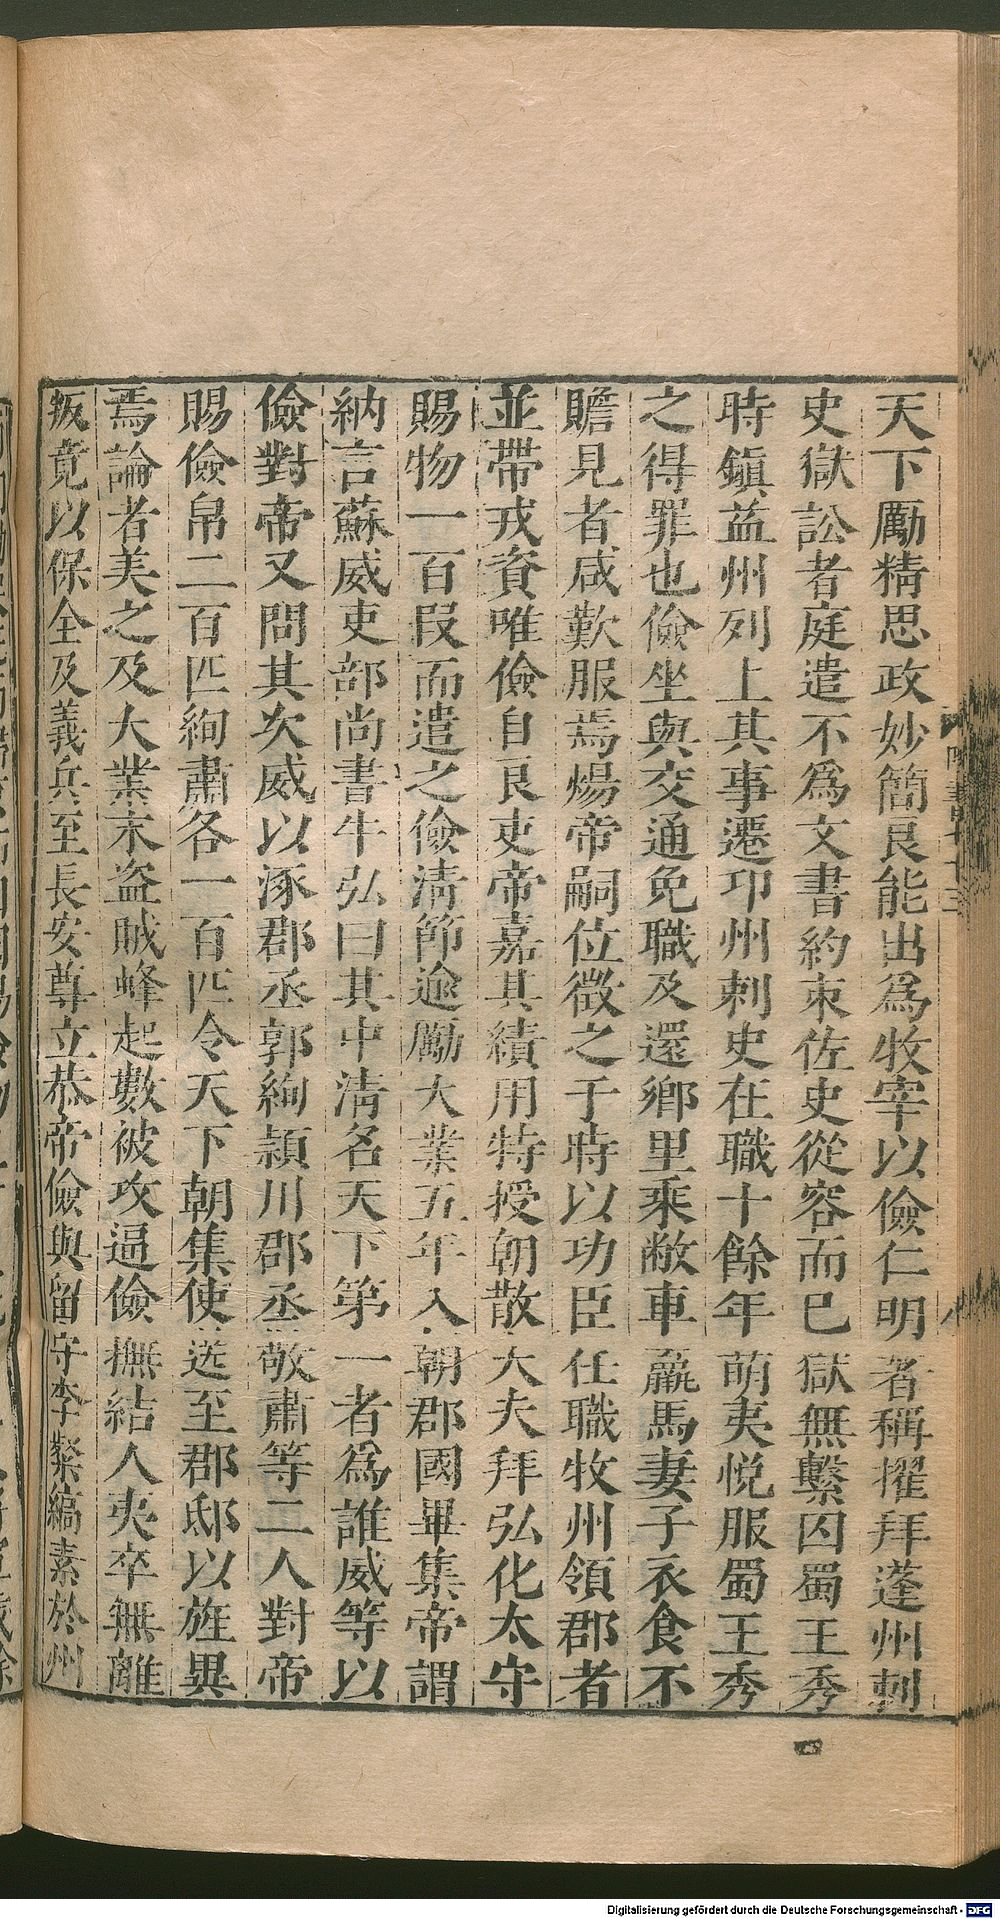 天下勵精思政妙簡良能出爲牧宰以儉仁明著稱擢拜蓬州刺
史獄訟者庭遣不爲文書約束佐史從容而已獄無繫囚蜀王秀
時鎭益州列上其事遷邛州刺史在職十餘年萌夷悅服蜀王秀
之得罪也儉坐與交通免職及還鄉里乘敝車羸馬妻子衣食不
贍見者咸歎服焉煬帝嗣位徵之于時以功臣任職牧州領郡者
並帶戎資唯儉自良吏帝嘉其績用特授朝散大夫拜弘化太守
賜物一百段而遣之儉淸節逾勵大業五年入朝郡國畢集帝謂
納言蘇威吏部尚書牛弘曰其中淸名天下第一者爲誰威等以
儉對帝又問其次威以涿郡丞郭絢潁川郡丞敬肅等二人對帝
賜儉帛二百匹絢肅各一百匹令天下朝集使送至郡邸以旌異
焉論者美之及大業末盜賊蜂起數被攻逼儉撫結人夷卒無離
叛竟以保全及義兵至長安尊立恭帝儉與留守李粲縞素於州
Digitalisierung gefördert durch die Deutsche Forschungsgemeinschaft - DFG